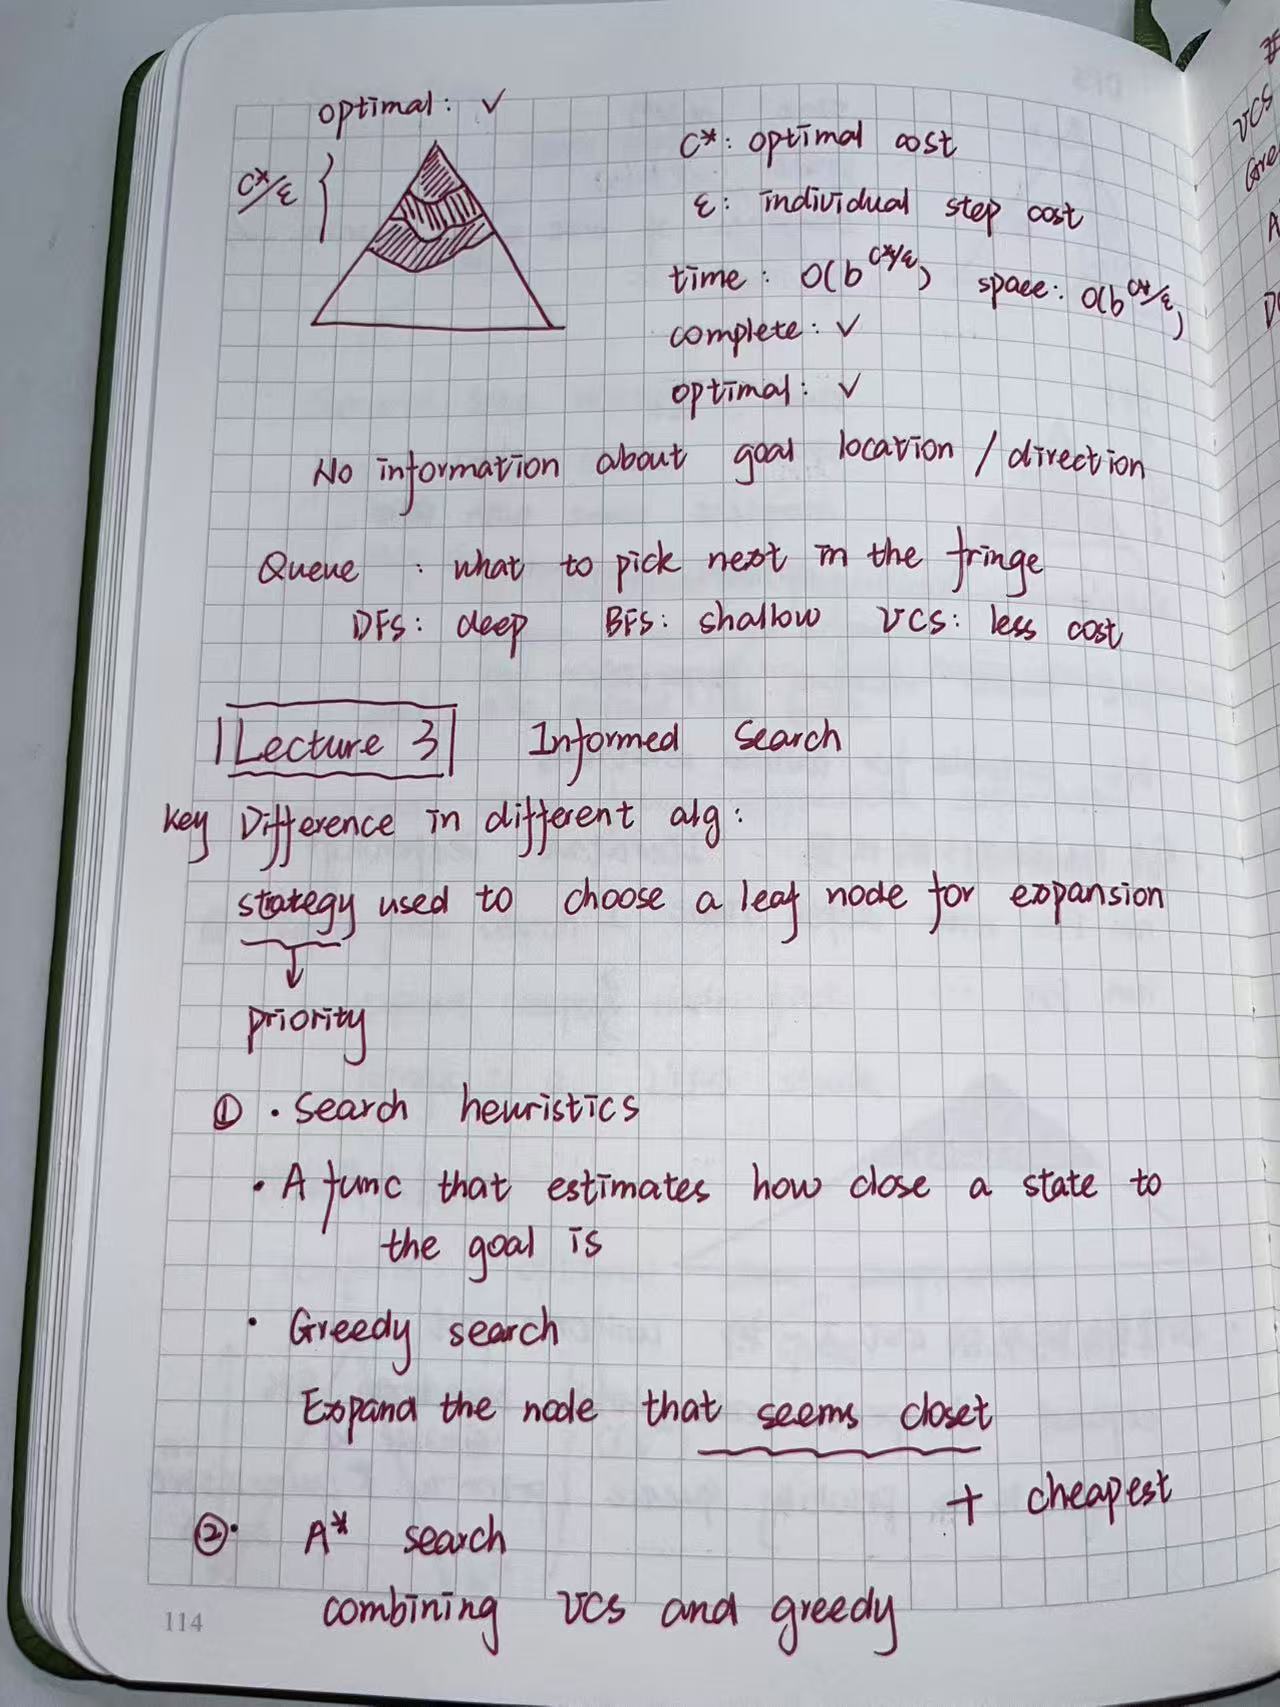 optimal: ✓
C*/ε
C*: optimal cost
ε: individual step cost
time: O(b^C*/ε) space: O(b^C*/ε)
complete: ✓
optimal: ✓
No information about goal location / direction
Queue : what to pick next in the fringe
DFS: deep BFS: shallow UCS: less cost
Lecture 3 Informed Search
key Difference in different alg:
strategy used to choose a leaf node for expansion
↓
priority
① · Search heuristics
· A func that estimates how close a state to
the goal is
· Greedy search
Expand the node that seems closet
+ cheapest
②· A* search
combining UCS and greedy
114
UCS